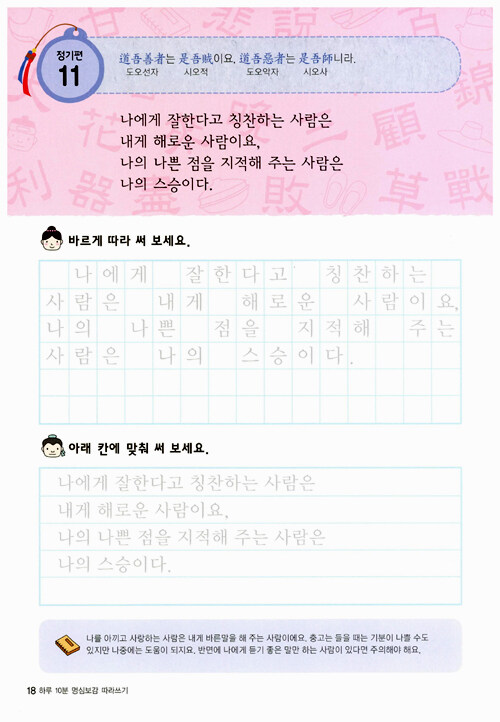 정기편
11
道吾善者는 是吾賊이요, 道吾惡者는 是吾師니라.
도오선자 시오적 도오악자 시오사
나에게 잘한다고 칭찬하는 사람은
내게 해로운 사람이요,
나의 나쁜 점을 지적해 주는 사람은
나의 스승이다.
바르게 따라 써 보세요.
나에게 잘한다고 칭찬하는
사람은 내게 해로운 사람이요,
나의 나쁜 점을 지적해 주는
사람은 나의 스승이다.
아래 칸에 맞춰 써 보세요.
나에게 잘한다고 칭찬하는 사람은
내게 해로운 사람이요,
나의 나쁜 점을 지적해 주는 사람은
나의 스승이다.
나를 아끼고 사랑하는 사람은 내게 바른말을 해 주는 사람이에요. 충고는 들을 때는 기분이 나쁠 수도
있지만 나중에는 도움이 되지요. 반면에 나에게 듣기 좋은 말만 하는 사람이 있다면 주의해야 해요.
18 하루 10분 명심보감 따라쓰기